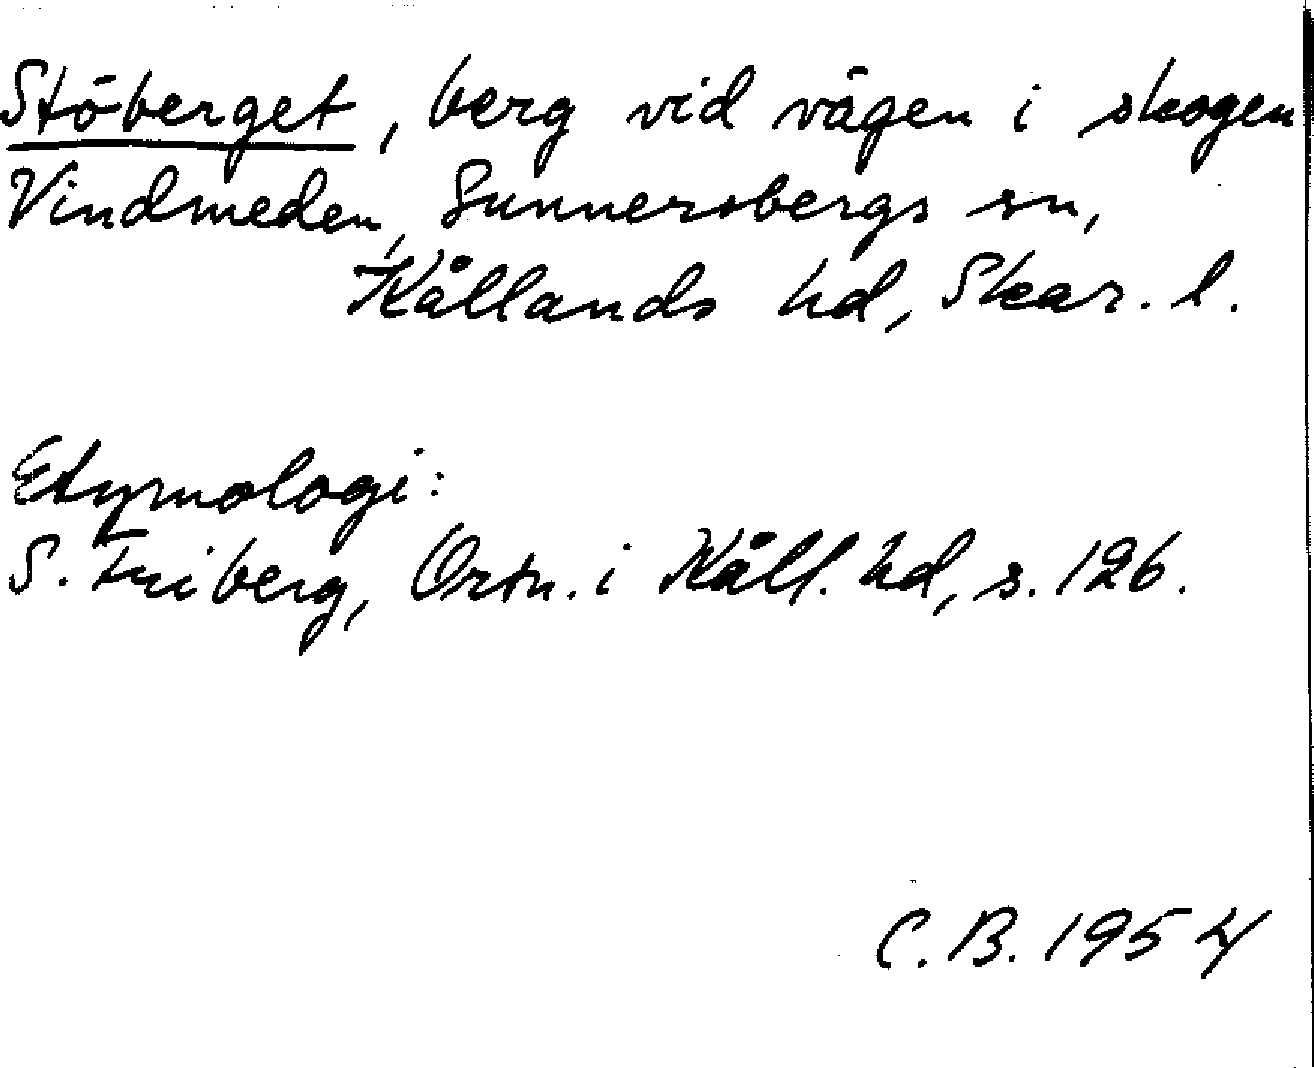 Stöberget, berg vid vägen i skogen
Vindmeden, Sunnersbergs sn,
Kållands hd, Skar. l.
Etymologi:
S. Friberg, Ortn. i Kåll. hd, s. 126.
C.B. 1954